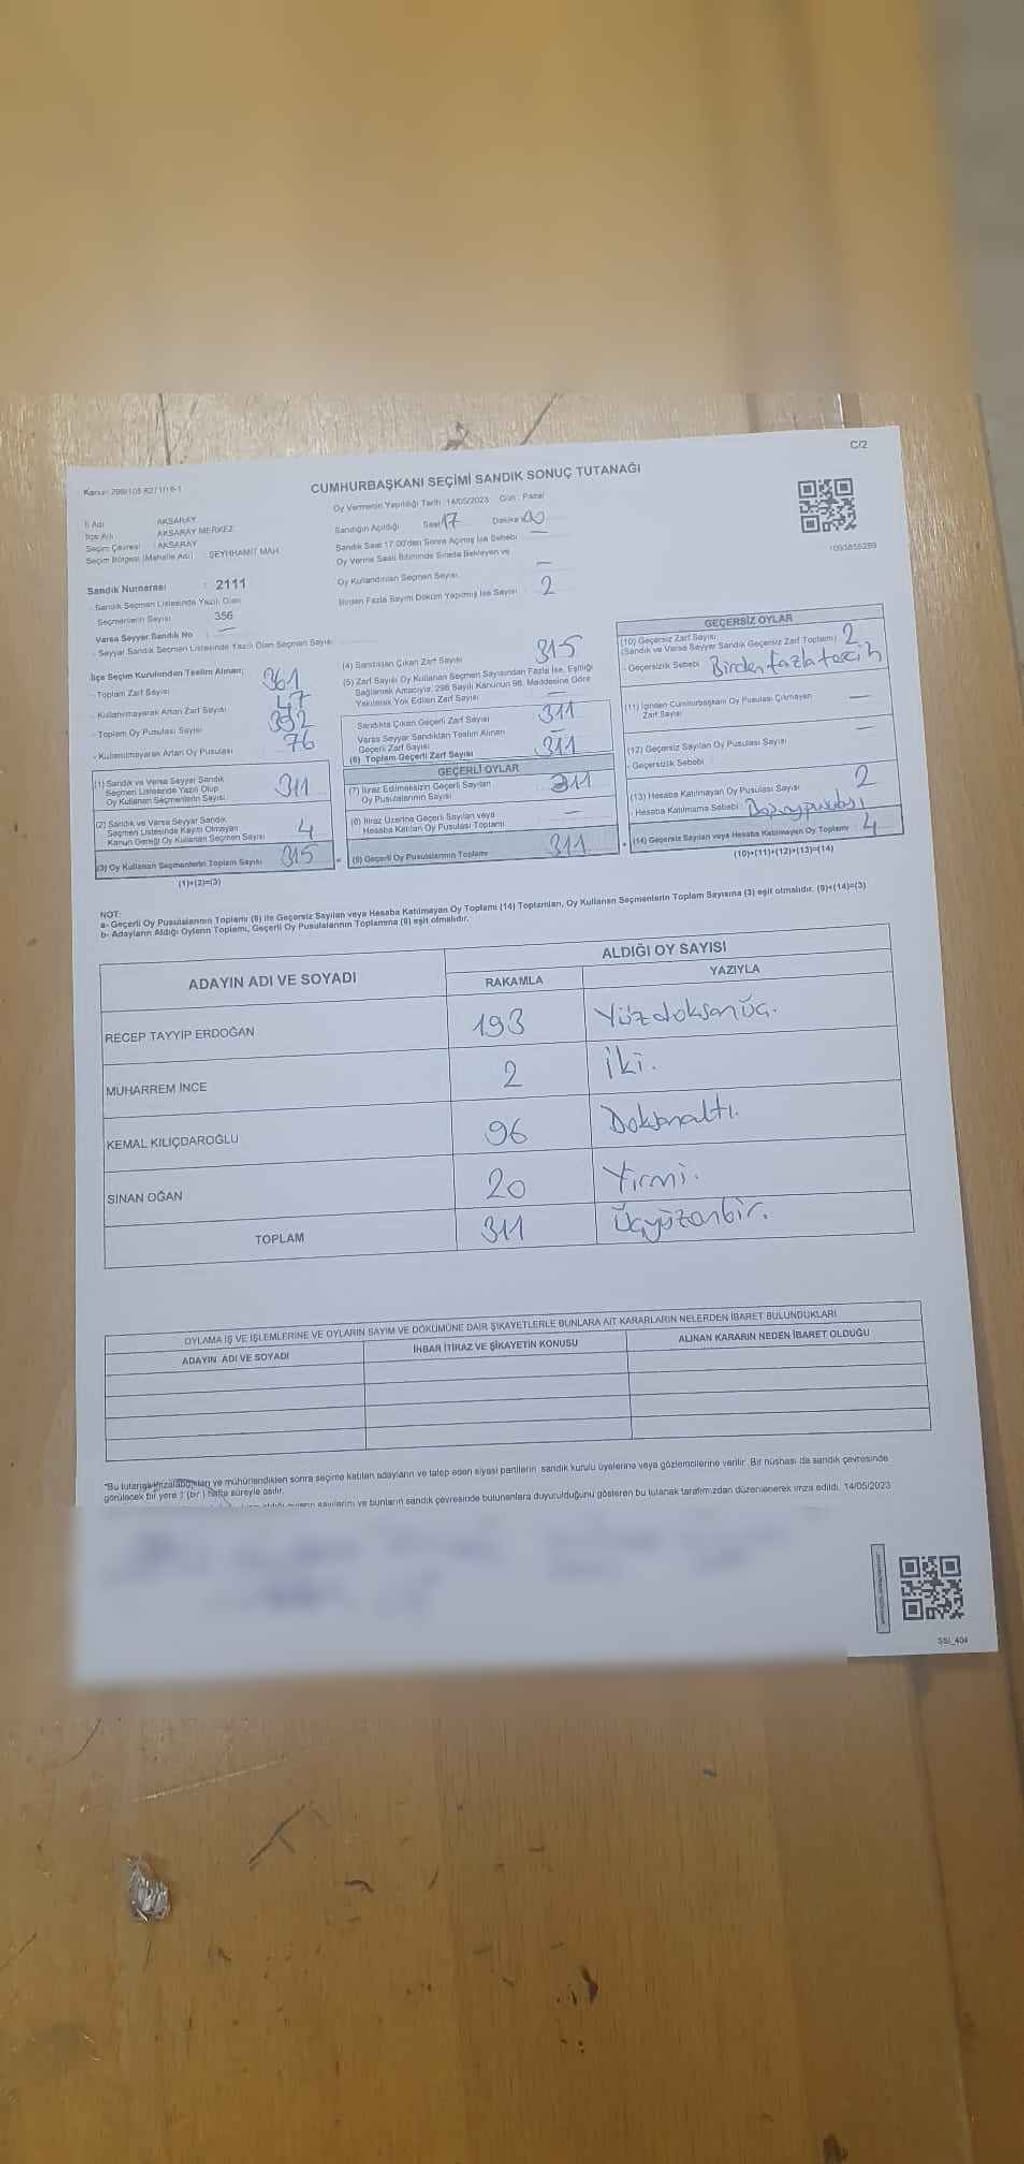 C/2
Kanun 298/105 6271/16-1
CUMHURBAŞKANI SEÇİMİ SANDIK SONUÇ TUTANAĞI
Oy Vermenin Yapıldığı Tarih : 14/05/2023 Gün : Pazar
İl Adı : AKSARAY
İlçe Adı : AKSARAY MERKEZ
Seçim Çevresi : AKSARAY
Seçim Bölgesi (Mahalle Adı) : ŞEYHHAMİT MAH.
Sandığın Açıldığı Saat 17 Dakika 00
Sandık Saat 17.00'den Sonra Açılmış İse Sebebi —
Oy Verme Saati Bitiminde Sırada Bekleyen ve
Oy Kullandırılan Seçmen Sayısı —
Birden Fazla Sayım Döküm Yapılmış İse Sayısı 2
1093856289
Sandık Numarası : 2111
- Sandık Seçmen Listesinde Yazılı Olan
Seçmenlerin Sayısı 356
Varsa Seyyar Sandık No —
- Seyyar Sandık Seçmen Listesinde Yazılı Olan Seçmen Sayısı
İlçe Seçim Kurulundan Teslim Alınan;
- Toplam Zarf Sayısı 361
- Kullanılmayarak Artan Zarf Sayısı 47
- Toplam Oy Pusulası Sayısı 392
- Kullanılmayarak Artan Oy Pusulası 76
(1) Sandık ve Varsa Seyyar Sandık
Seçmen Listesinde Yazılı Olup
Oy Kullanan Seçmenlerin Sayısı 311
(2) Sandık ve Varsa Seyyar Sandık
Seçmen Listesinde Kaydı Olmayan
Kanun Gereği Oy Kullanan Seçmen Sayısı 4
(3) Oy Kullanan Seçmenlerin Toplam Sayısı 315
(1)+(2)=(3)
(4) Sandıktan Çıkan Zarf Sayısı 315
(5) Zarf Sayısı Oy Kullanan Seçmen Sayısından Fazla İse, Eşitliği
Sağlamak Amacıyla, 298 Sayılı Kanunun 98. Maddesine Göre
Yakılarak Yok Edilen Zarf Sayısı —
Sandıkta Çıkan Geçerli Zarf Sayısı 311
Varsa Seyyar Sandıktan Teslim Alınan
Geçerli Zarf Sayısı —
(6) Toplam Geçerli Zarf Sayısı 311
GEÇERLİ OYLAR
(7) İtiraz Edilmeksizin Geçerli Sayılan
Oy Pusulalarının Sayısı 311
(8) İtiraz Üzerine Geçerli Sayılan veya
Hesaba Katılan Oy Pusulası Toplamı —
(9) Geçerli Oy Pusulalarının Toplamı 311
GEÇERSİZ OYLAR
(10) Geçersiz Zarf Sayısı
(Sandık ve Varsa Seyyar Sandık Geçersiz Zarf Toplamı) 2
- Geçersizlik Sebebi Birden fazla tercih
(11) İçinden Cumhurbaşkanı Oy Pusulası Çıkmayan
Zarf Sayısı —
(12) Geçersiz Sayılan Oy Pusulası Sayısı —
- Geçersizlik Sebebi
(13) Hesaba Katılmayan Oy Pusulası Sayısı 2
- Hesaba Katılmama Sebebi
(14) Geçersiz Sayılan veya Hesaba Katılmayan Oy Toplamı 4
(10)+(11)+(12)+(13)=(14)
NOT:
a- Geçerli Oy Pusulalarının Toplamı (9) ile Geçersiz Sayılan veya Hesaba Katılmayan Oy Toplamı (14) Toplamları, Oy Kullanan Seçmenlerin Toplam Sayısına (3) eşit olmalıdır. (9)+(14)=(3)
b- Adayların Aldığı Oyların Toplamı, Geçerli Oy Pusulalarının Toplamına (9) eşit olmalıdır.
ADAYIN ADI VE SOYADI
ALDIĞI OY SAYISI
RAKAMLA YAZIYLA
RECEP TAYYİP ERDOĞAN 193 Yüzdoksanüç.
MUHARREM İNCE 2 İki.
KEMAL KILIÇDAROĞLU 96 Doksanaltı.
SİNAN OĞAN 20 Yirmi.
TOPLAM 311 Üçyüzonbir.
OYLAMA İŞ VE İŞLEMLERİNE VE OYLARIN SAYIM VE DÖKÜMÜNE DAİR ŞİKAYETLERLE BUNLARA AİT KARARLARIN NELERDEN İBARET BULUNDUKLARI
ADAYIN ADI VE SOYADI İHBAR İTİRAZ VE ŞİKAYETİN KONUSU ALINAN KARARIN NEDEN İBARET OLDUĞU
"Bu tutanak ve mühürlendikten sonra seçime katılan adayların ve talep eden siyasi partilerin sandık kurulu üyelerine veya gözlemcilerine verilir. Bir nüshası da sandık çevresinde
görülecek bir yere 1 (bir) hafta süreyle asılır.
oyların sayılarını ve bunların sandık çevresinde bulunanlara duyurulduğunu gösteren bu tutanak tarafımızdan düzenlenerek imza edildi. 14/05/2023
SSI_404